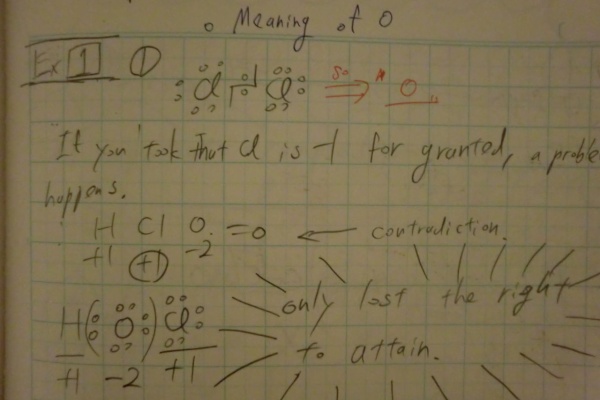 Meaning of 0
Ex 1 ①
Cl Cl So 0
If you took that Cl is -1 for granted, a proble
happens.
H Cl O = 0 ← contradiction.
+1 +1 -2
only lost the right
H O Cl
to attain.
+1 -2 +1